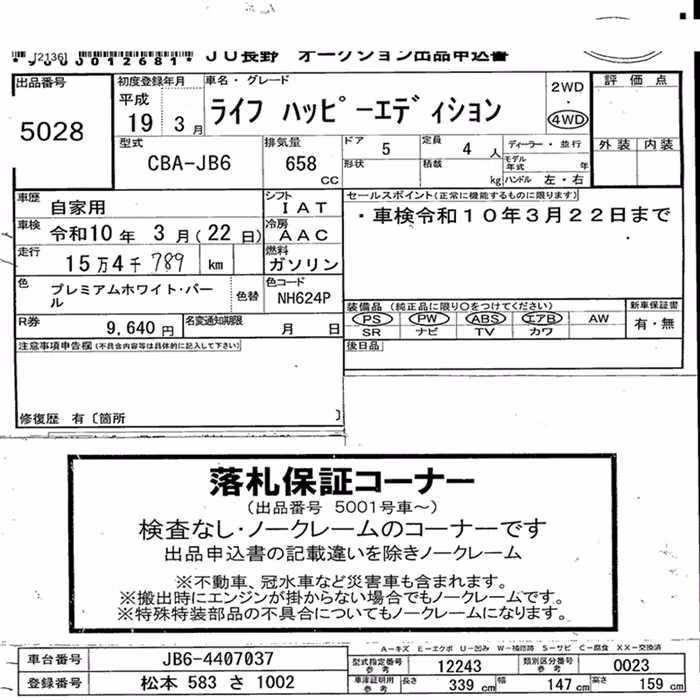 [2136]
*JUJ0012681* JU長野 オークション出品申込書
出品番号 初度登録年月 車名・グレード 評価点
5028 平成 19 3月 ライフ ハッピーエディション 2WD・4WD
型式 排気量 ドア 定員 ディーラー・並行 外装 内装
CBA-JB6 658 CC 5 4 人
形状 積載 kg モデル年式 年 ハンドル 左・右
車歴 自家用 シフト IAT セールスポイント(正常に機能するものに限ります)
車検 令和10年 3月(22日) 冷房 AAC ・車検令和10年3月22日まで
走行 15万4千789 km 燃料 ガソリン
色 プレミアムホワイト・パール 色替 色コード NH624P
装備品 (純正品に限り○をつけてください) 新車保証書
PS PW ABS エアB AW 有・無
SR ナビ TV カワ
R券 9,640円 名変通知期限 月 日
注意事項申告欄(不具合内容等は具体的に記入して下さい) 後日品
修復歴 有〔箇所 〕
落札保証コーナー
(出品番号 5001号車～)
検査なし・ノークレームのコーナーです
出品申込書の記載違いを除きノークレーム
※不動車、冠水車など災害車も含まれます。
※搬出時にエンジンが掛からない場合でもノークレームです。
※特殊特装部品の不具合についてもノークレームになります。
A-キズ E-エクボ U-凹み W-補修跡 S-サビ C-腐食 XX-交換済
車台番号 JB6-4407037 型式指定番号 参考 12243 類別区分番号 参考 0023
登録番号 松本 583 さ 1002 車庫証明用 参考 長さ 339 cm 幅 147 cm 高さ 159 cm